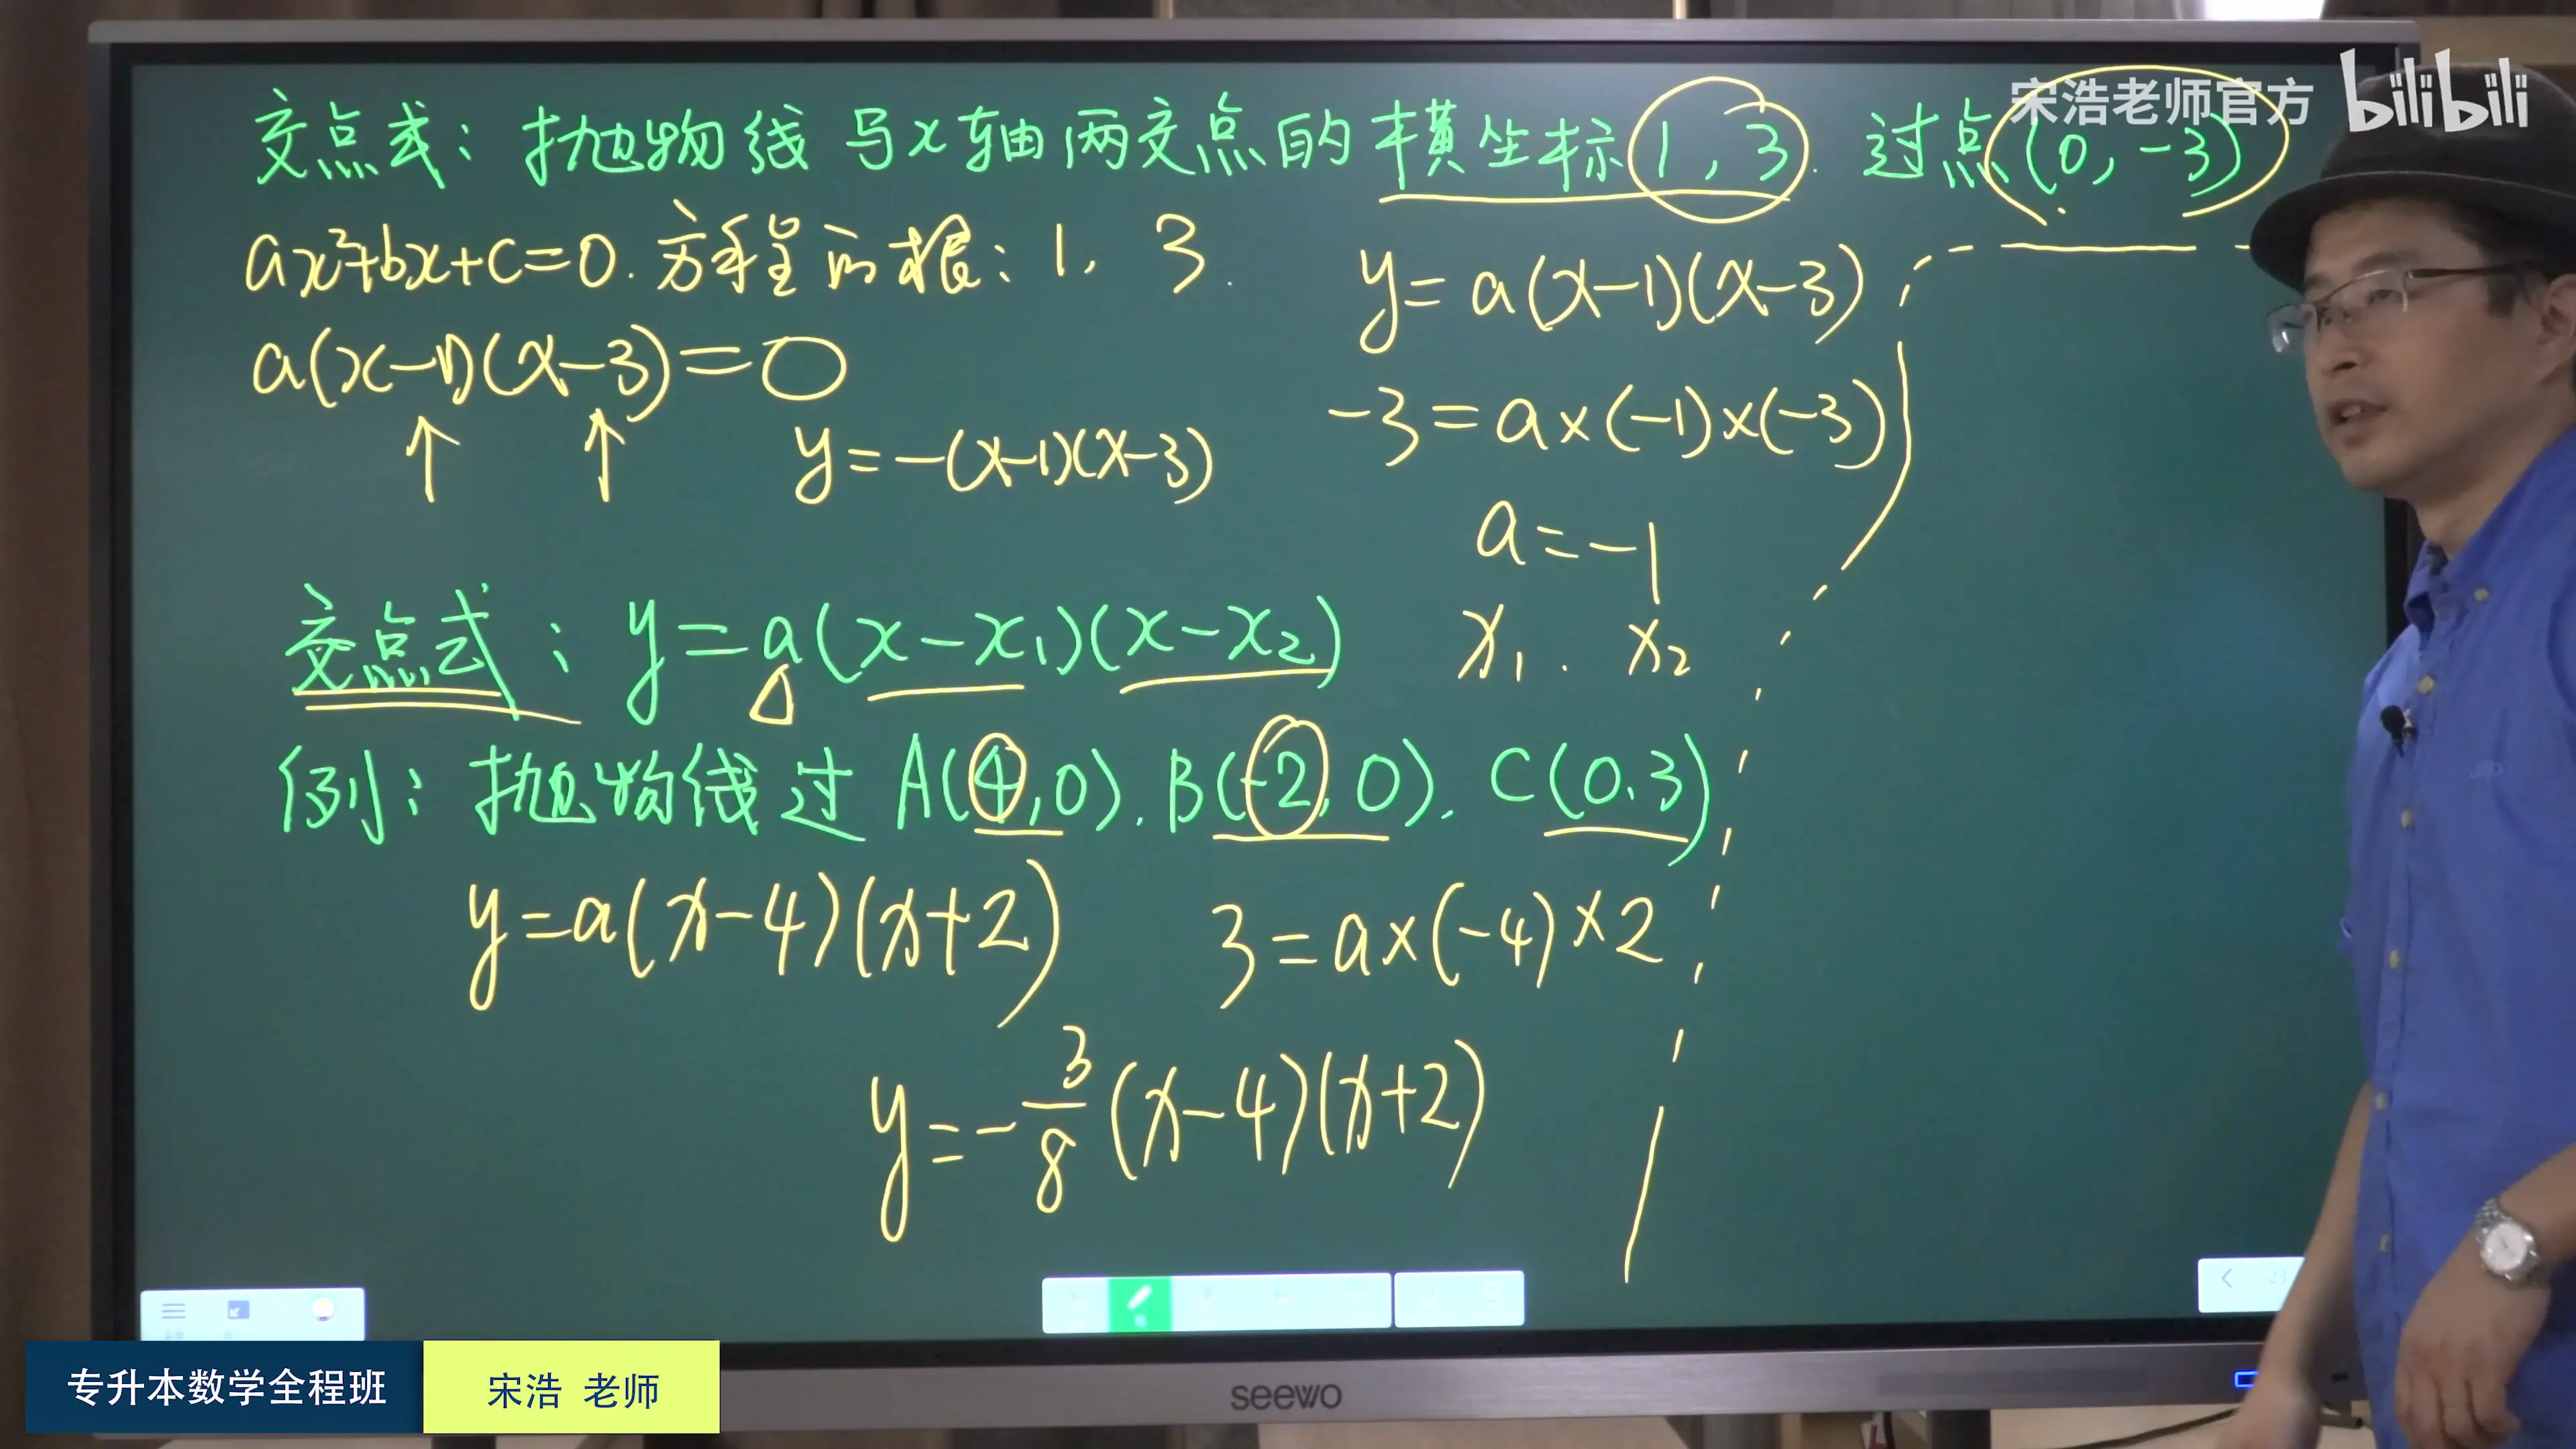 宋浩老师官方 bilibili
交点式：抛物线与x轴两交点的横坐标1，3. 过点(0，-3)
ax²+bx+c=0. 方程的根：1，3.
y=a(x-1)(x-3)
a(x-1)(x-3)=0
-3=a×(-1)×(-3)
y=-(x-1)(x-3)
a=-1
交点式：y=a(x-x₁)(x-x₂)
x₁. x₂
例：抛物线过A(4,0). B(-2,0). C(0.3)
y=a(x-4)(x+2) 3=a×(-4)×2
y=-3/8(x-4)(x+2)
专升本数学全程班 宋浩 老师
seewo